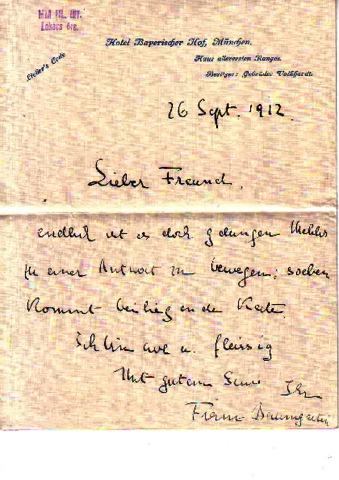 MTA FIL. INT.
Lukács Arch.
Hotel Bayerischer Hof, München.
Haus allerersten Ranges.
Besitzer: Gebrüder Volkhardt.
Lieber's Code
26 Sept. 1912.
Lieber Freund,
endlich ist es doch gelungen
zu einer Antwort zu bewegen; soeben
kommt beiliegende Karte.
Ich bin wol u. fleissig
Mit gutem Ihr
Franz Baumgarten